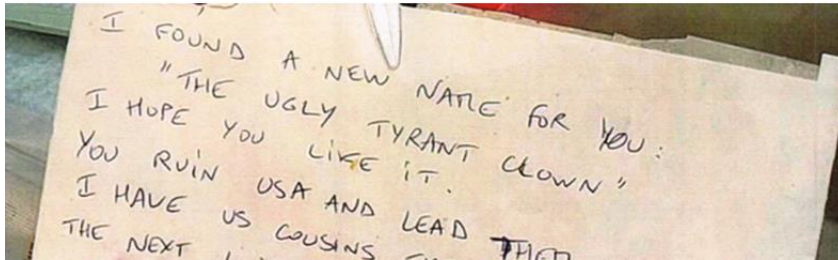 I FOUND A NEW NAME FOR YOU:
"THE UGLY TYRANT CLOWN"
I HOPE YOU LIKE IT.
YOU RUIN USA AND LEAD THEM
I HAVE US COUSINS
THE NEXT